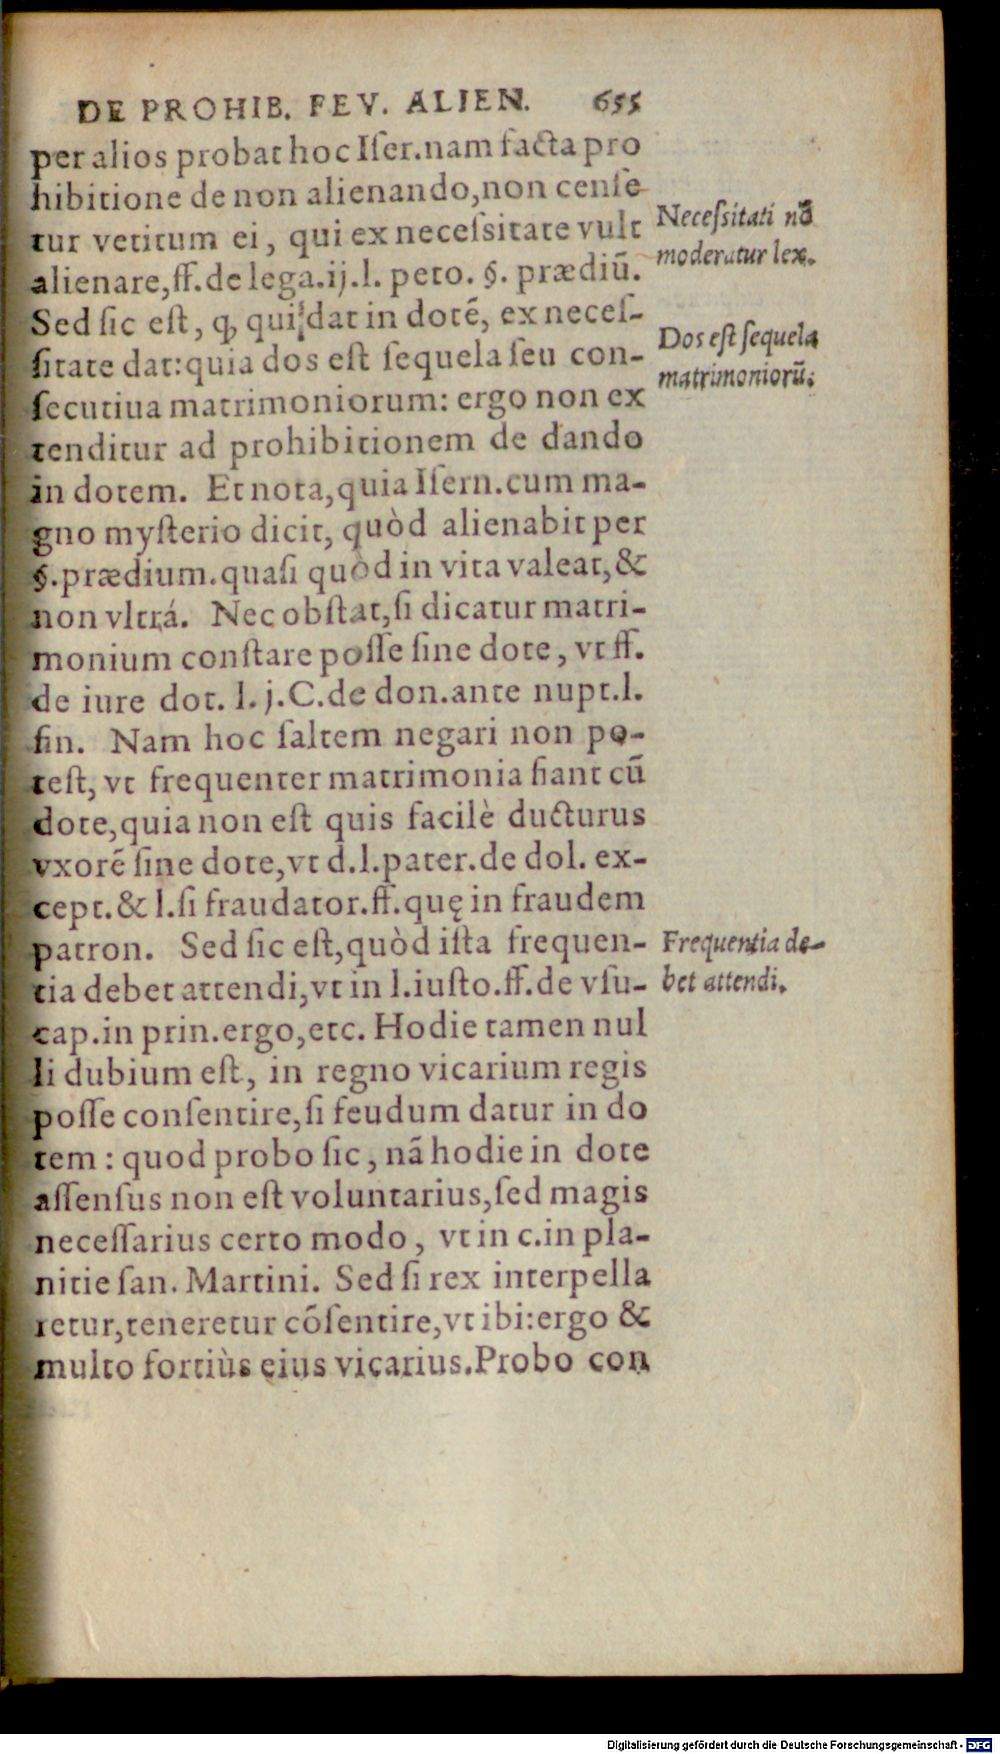 DE PROHIB. FEV. ALIEN. 655
per alios probat hoc Iſer.nam facta pro
hibitione de non alienando,non cenſe
tur vetitum ei, qui ex neceſsitate vult
alienare,ff.de lega.ij.l. peto. §. prædiũ.
Sed ſic eſt, ꝙ qui dat in dotẽ, ex neceſ-
ſitate dat:quia dos eſt ſequela ſeu con-
ſecutiua matrimoniorum: ergo non ex
tenditur ad prohibitionem de dando
in dotem. Et nota,quia Iſern.cum ma-
gno myſterio dicit, quòd alienabit per
§.prædium.quaſi quòd in vita valeat,&
non vltrá. Nec obſtat,ſi dicatur matri-
monium conſtare poſſe ſine dote, vt ff.
de iure dot. l. j.C.de don.ante nupt.l.
fin. Nam hoc ſaltem negari non po-
teſt, vt frequenter matrimonia fiant cũ
dote,quia non eſt quis facilè ducturus
vxorẽ ſine dote,vt d.l.pater.de dol. ex-
cept.& l.ſi fraudator.ff.quę in fraudem
patron. Sed ſic eſt,quòd iſta frequen-
tia debet attendi,vt in l.iuſto.ff.de vſu-
cap.in prin.ergo,etc. Hodie tamen nul
li dubium eſt, in regno vicarium regis
poſſe conſentire,ſi feudum datur in do
tem : quod probo ſic, nã hodie in dote
aſſenſus non eſt voluntarius,ſed magis
neceſſarius certo modo, vt in c.in pla-
nitie ſan. Martini. Sed ſi rex interpella
retur,teneretur cõſentire,vt ibi:ergo &
multo fortiùs eius vicarius.Probo con
Neceſsitati nõ
moderatur lex.
Dos eſt ſequela
matrimoniorũ.
Frequentia de-
bet attendi.
Digitalisierung gefördert durch die Deutsche Forschungsgemeinschaft - DFG